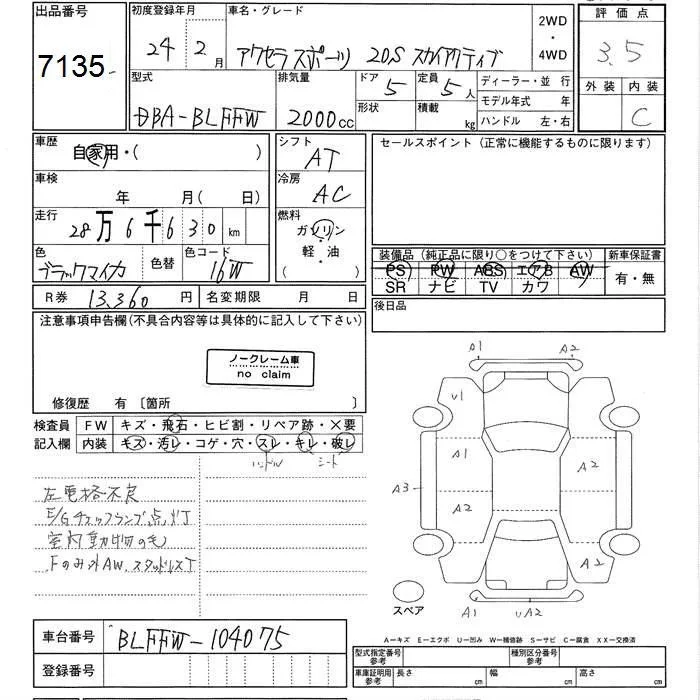 出品番号
7135
初度登録年月
24年 2月
車名・グレード
アクセラスポーツ 20S スカイアクティブ
2WD
・
4WD
評価点
3.5
外装 内装
C
型式
DBA-BLFFW
排気量
2000cc
ドア 5
形状
定員 5人
積載 kg
ディーラー・並 行
モデル年式 年
ハンドル 左・右
車歴
自家用・( )
車検
年 月(日)
走行
28万6千630km
色
ブラックマイカ
色替
色コード
16W
シフト
AT
冷房
AC
燃料
ガソリン
・
軽・油
( )
セールスポイント(正常に機能するものに限ります)
装備品(純正品に限り○をつけて下さい)
PS PW ABS エアB AW
SR ナビ TV カワ
新車保証書
有・無
R券 13,360円
名変期限 月 日
後日品
注意事項申告欄(不具合内容等は具体的に記入して下さい)
ノークレーム車
no claim
修復歴 有〔箇所 〕
検査員
記入欄
FW キズ・飛石・ヒビ割・リペア跡・×要
内装 キズ・汚レ・コゲ・穴・スレ・キレ・破レ
ハンドル シート
左電格不良
E/Gチェックランプ点灯
室内動物の毛
Fのみ外AW.スタッドレスT
A1 A2
U1
A1
A2
A3
A2
A2
A1 UA2
スペア
A-キズ E-エクボ U-凹み W-補修跡 S-サビ C-腐食 XX-交換済
車台番号
BLFFW-104075
登録番号
型式指定番号
参考
種別区分番号
参考
車庫証明用
参考
長さ cm
幅 cm
高さ cm